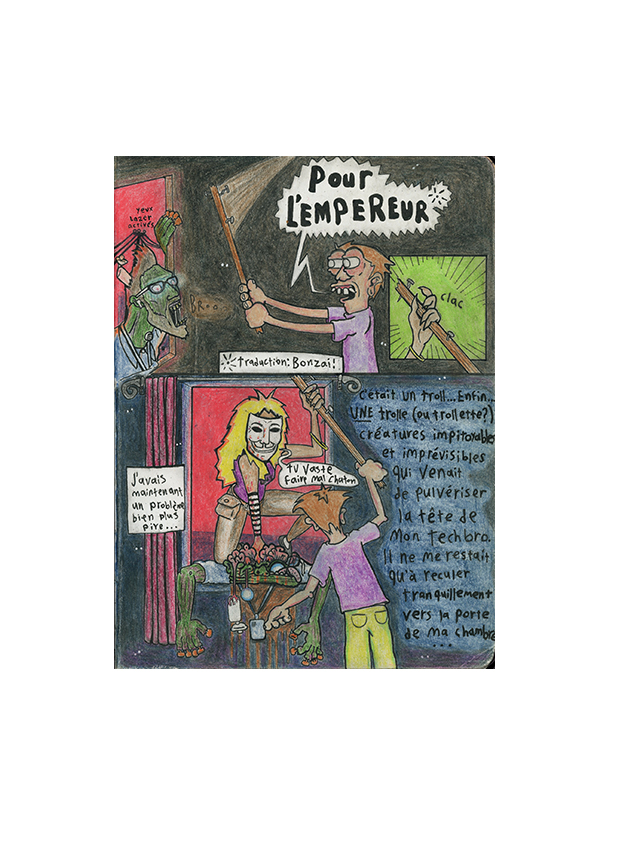 Pour
L'EMPEREUR*
Yeux
Lazer
activés
clac
*traduction: Bonzai!
c'était un troll... Enfin...
UNE trolle (ou trollette?)
créatures impitoyables
et imprévisibles
qui venait
de pulvériser
la tête de
Mon techbro.
Il ne me restait
qu'à reculer
tranquillement
vers la porte
de ma chambre
...
tu vas te
faire mal chaton
J'avais
maintenant
un problème
bien plus
pire...